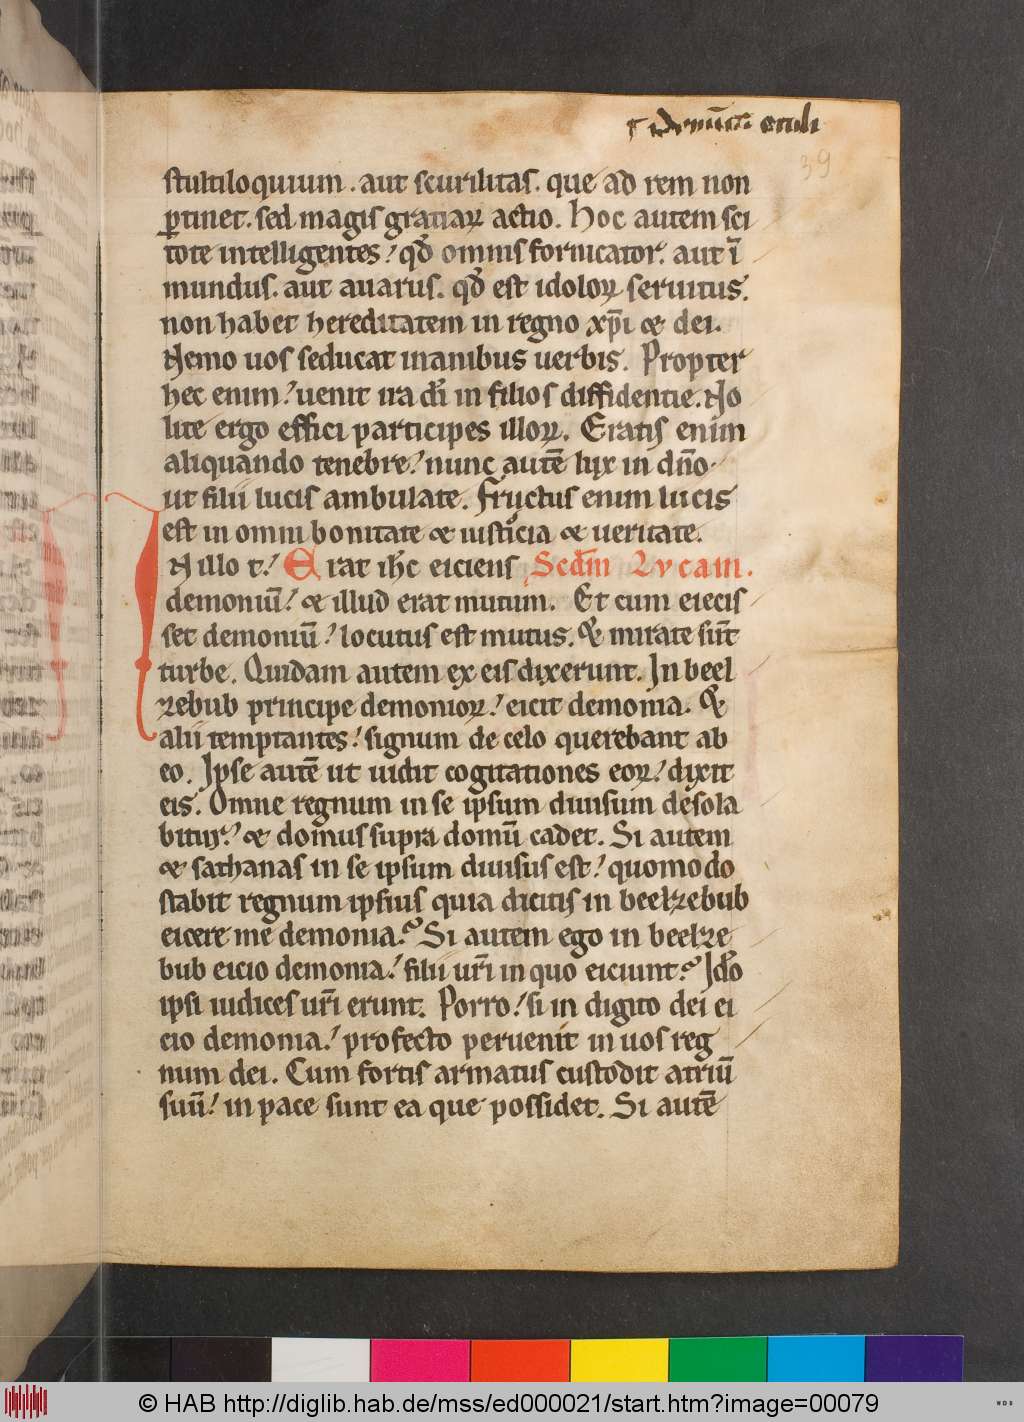 39
stultiloquium . aut scurilitas . que ad rem non
ꝑtinet . sed magis gratiaꝝ actio . Hoc autem sci
tote intelligentes / qd̓ omnis fornicator . aut ī
mundus . aut auarus . qd̓ est idoloꝝ seruitus .
non habet hereditatem in regno xp̄i ⁊ dei .
Nemo uos seducat inanibus uerbis . Propter
hec enim / uenit ira di̓ in filios diffidentie . No
lite ergo effici participes illoꝝ . Eratis enim
aliquando tenebre / nunc autē lux in dn̄o
ut filii lucis ambulate . Fructus enim lucis
est in omni bonitate ⁊ iusticia ⁊ ueritate .
IN illo t . Erat ih̄c eiciens Scd̄m Lvcam .
demoniū / ⁊ illud erat mutum . Et cum eiecis
set demoniū / locutus est mutus . & mirate sūt
turbe . Quidam autem ex eis dixerunt . In beel
zebub principe demonioꝝ / eicit demonia . &
alii temptantes / signum de celo querebant ab
eo . Ipse autē ut uidit cogitationes eoꝝ / dixit
eis . Omne regnum in se ipsum diuisum desola
bitur / ⁊ domus supra domū cadet . Si autem
⁊ sathanas in se ipsum diuisus est / quomodo
stabit regnum ipsius quia dicitis in beelzebub
eicere me demonia . Si autem ego in beelze
bub eicio demonia / filii ur̄i in quo eiciunt ? Id̓o
ipsi iudices ur̄i erunt . Porro / si in digito dei ei
cio demonia / profecto peruenit in uos reg
num dei . Cum fortis armatus custodit atriū
suū / in pace sunt ea que possidet . Si autē
© HAB http://diglib.hab.de/mss/ed000021/start.htm?image=00079